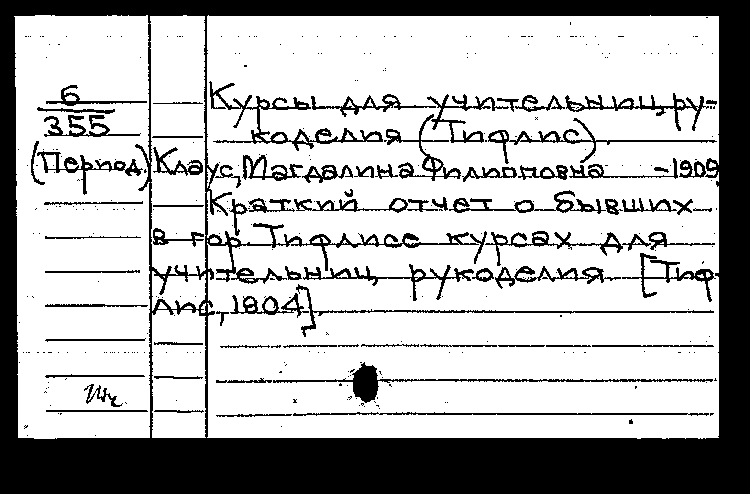 6
355
(Период.)
Курсы для учительниц ру-
коделия (Тифлис).
Клаус, Магдалина Филипповна -1909
Краткий отчет о бывших
в гор Тифлисе курсах для
учительниц рукоделия [Тиф-
лис, 1804].